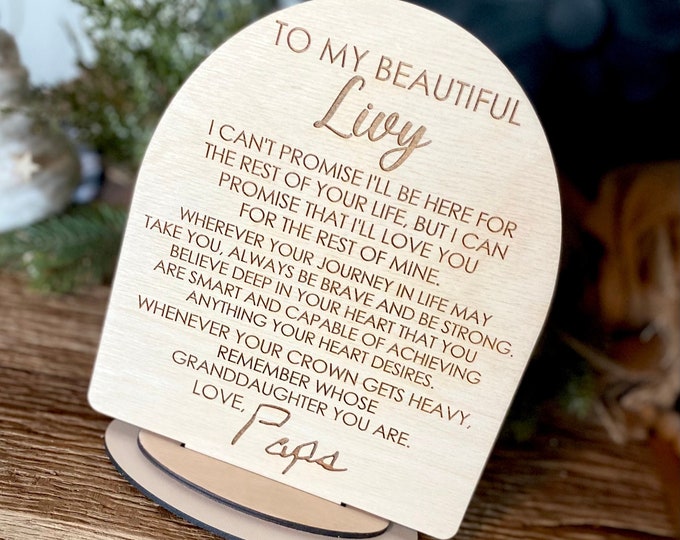 TO MY BEAUTIFUL
Livy
I CAN'T PROMISE I'LL BE HERE FOR
THE REST OF YOUR LIFE, BUT I CAN
PROMISE THAT I'LL LOVE YOU
FOR THE REST OF MINE.
WHEREVER YOUR JOURNEY IN LIFE MAY
TAKE YOU, ALWAYS BE BRAVE AND BE STRONG.
BELIEVE DEEP IN YOUR HEART THAT YOU
ARE SMART AND CAPABLE OF ACHIEVING
ANYTHING YOUR HEART DESIRES.
WHENEVER YOUR CROWN GETS HEAVY,
REMEMBER WHOSE
GRANDDAUGHTER YOU ARE.
LOVE,
Paps